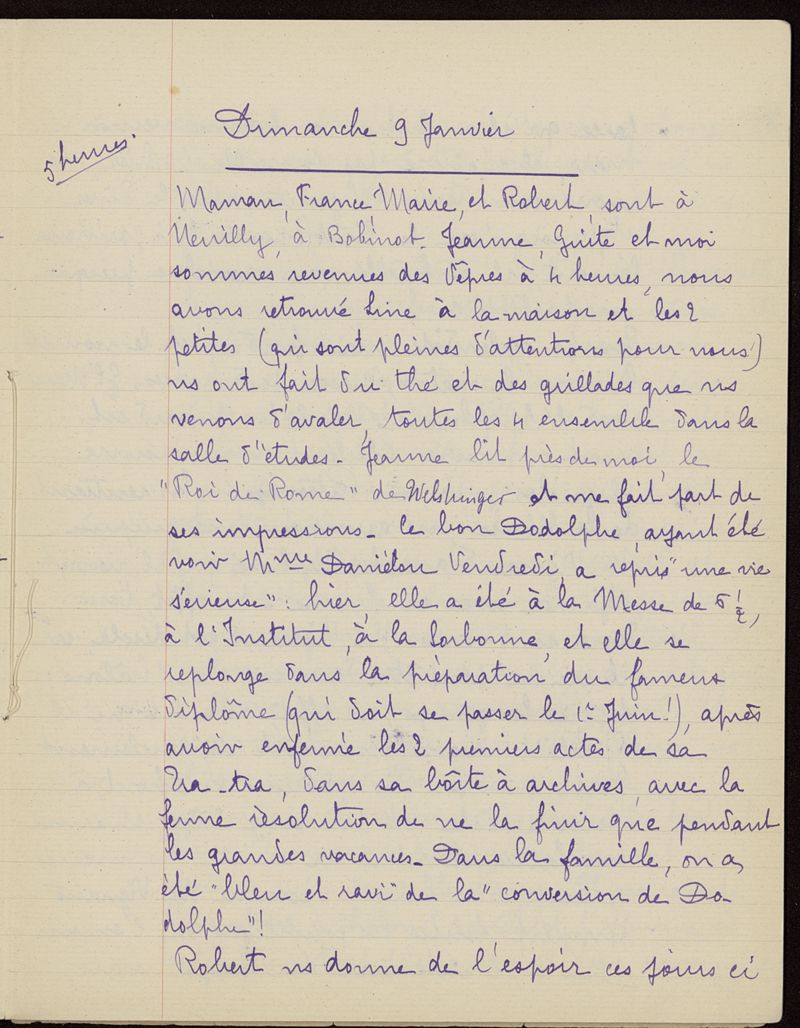 Dimanche 9 Janvier
5 heures.
Maman, France Marie, et Robert, sont à
Neuilly, à Bobinot. Jeanne, Guite et moi
sommes revenues des Vêpres à 4 heures, nous
avons retrouvé Line à la maison et les 2
petites (qui sont pleines d'attentions pour nous)
ns ont fait du thé et des grillades que ns
venons d'avaler, toutes les 4 ensemble dans la
salle d'études. Jeanne lit près de moi, le
"Roi de Rome" de Welshinger et me fait part de
ses impressions. Le bon Dodolphe, ayant été
voir Mme Daniélou Vendredi, a repris "une vie
sérieuse": hier, elle a été à la Messe de 5 1/2,
à l'Institut, à la Sorbonne, et elle se
replonge dans la préparation du fameux
diplôme (qui doit se passer le 1er Juin!), après
avoir enfermé les 2 premiers actes de sa
Tra-tra, dans sa boîte à archives, avec la
ferme résolution de ne la finir que pendant
les grandes vacances. Dans la famille, on a
été "bleu et ravi" de la "conversion de Do-
dolphe"!
Robert ns donne de l'espoir ces jours ci